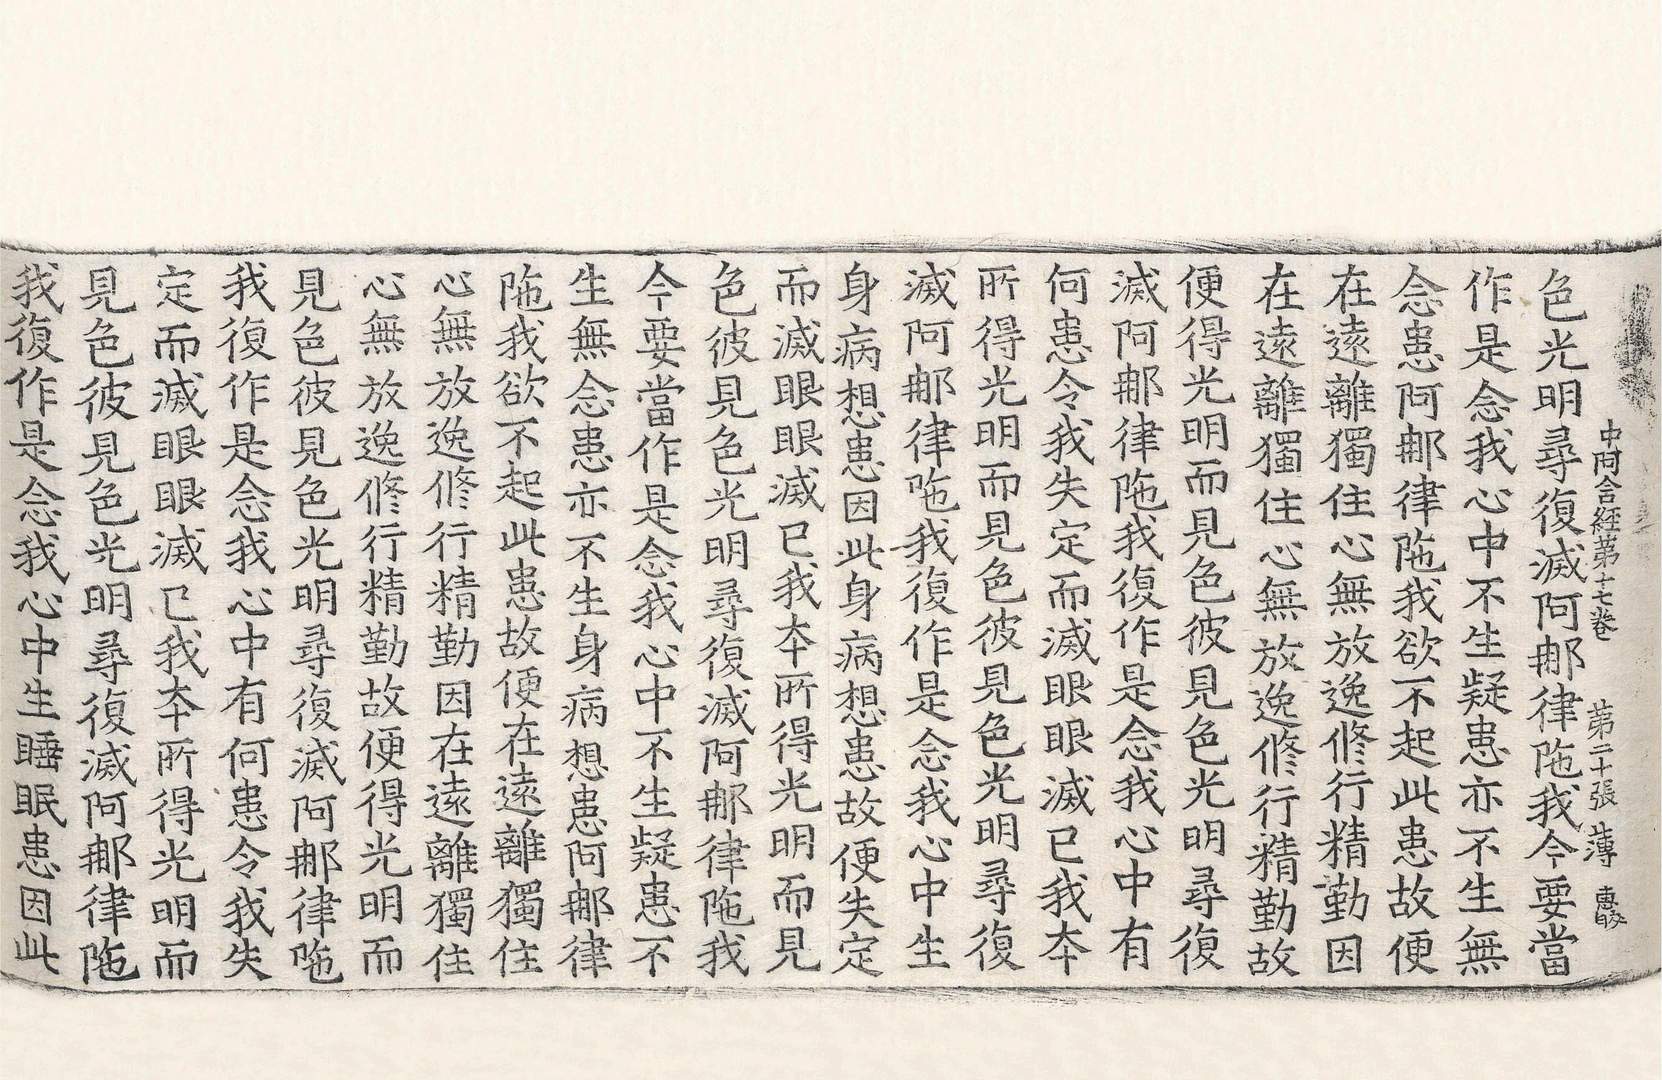 中阿含経第十七巻 第二十張 薄
色光明尋復滅阿那律陁我今要當
作是念我心中不生疑患亦不生無
念患阿那律陁我欲不起此患故便
在遠離獨住心無放逸修行精勤因
在遠離獨住心無放逸修行精勤故
便得光明而見色彼見色光明尋復
滅阿那律陁我復作是念我心中有
何患令我失定而滅眼眼滅已我本
所得光明而見色彼見色光明尋復
滅阿那律陁我復作是念我心中生
身病想患因此身病想患故便失定
而滅眼眼滅已我本所得光明而見
色彼見色光明尋復滅阿那律陁我
今要當作是念我心中不生疑患不
生無念患亦不生身病想患阿那律
陁我欲不起此患故便在遠離獨住
心無放逸修行精勤因在遠離獨住
心無放逸修行精勤故便得光明而
見色彼見色光明尋復滅阿那律陁
我復作是念我心中有何患令我失
定而滅眼眼滅已我本所得光明而
見色彼見色光明尋復滅阿那律陁
我復作是念我心中生睡眠患因此